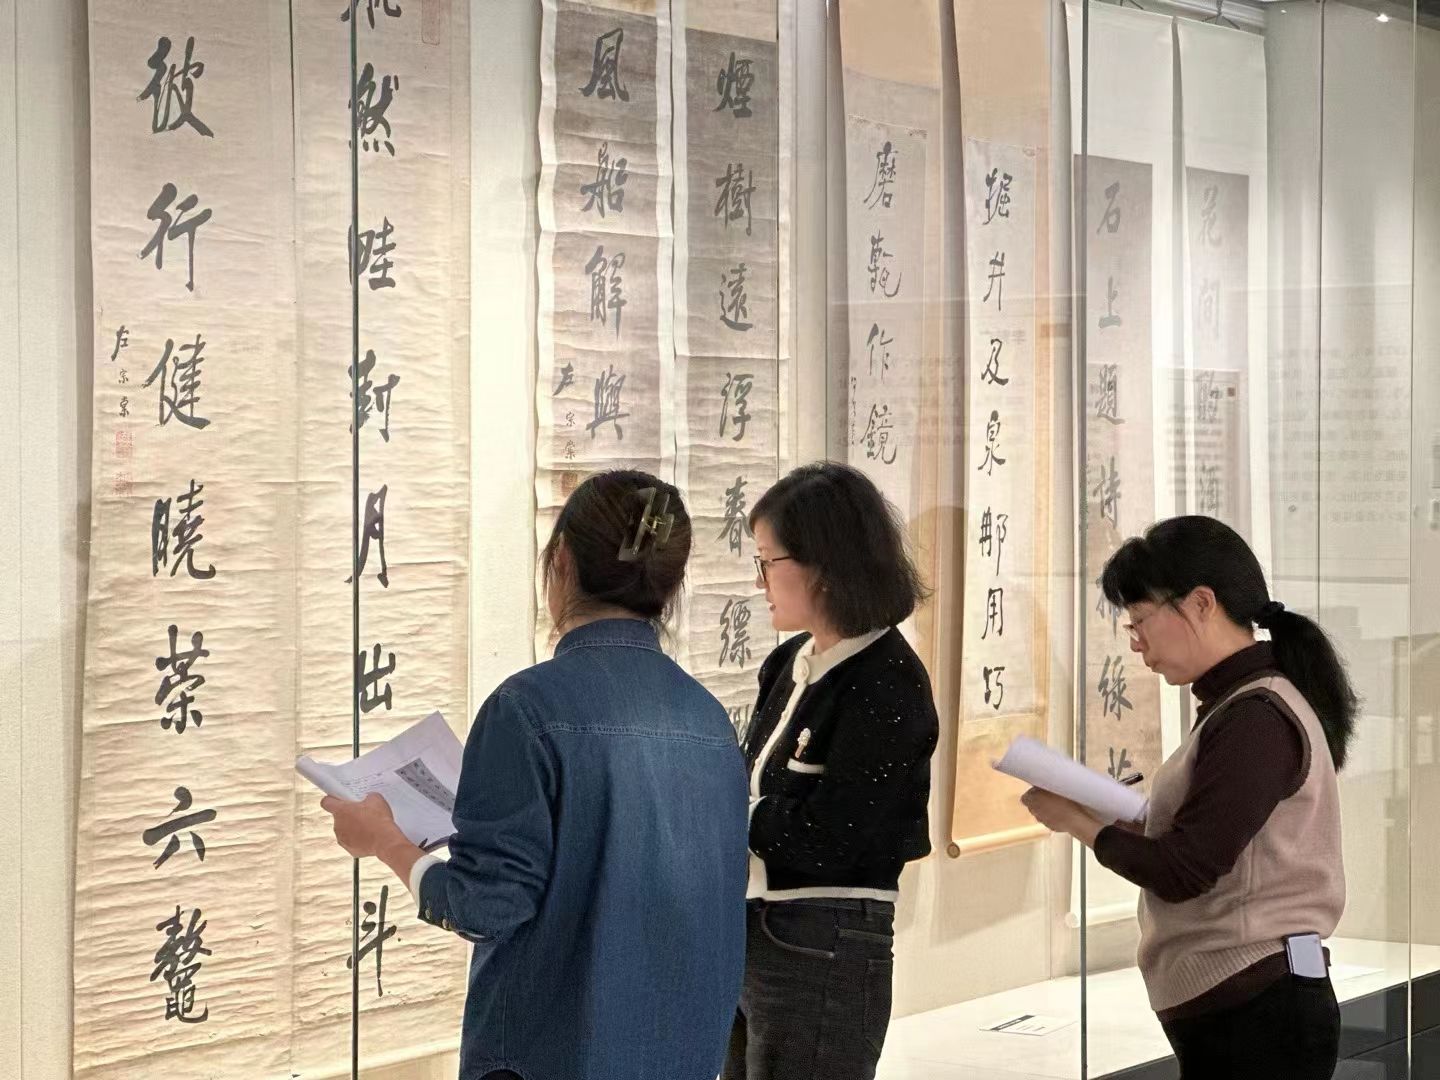 花間酌酒
石上題詩掃綠苔
掘井及泉那用巧
磨甎作鏡
煙樹遠浮春縹
風船解與
左宗棠
然畦封月出斗
彼行健曉榮六鼇
左宗棠